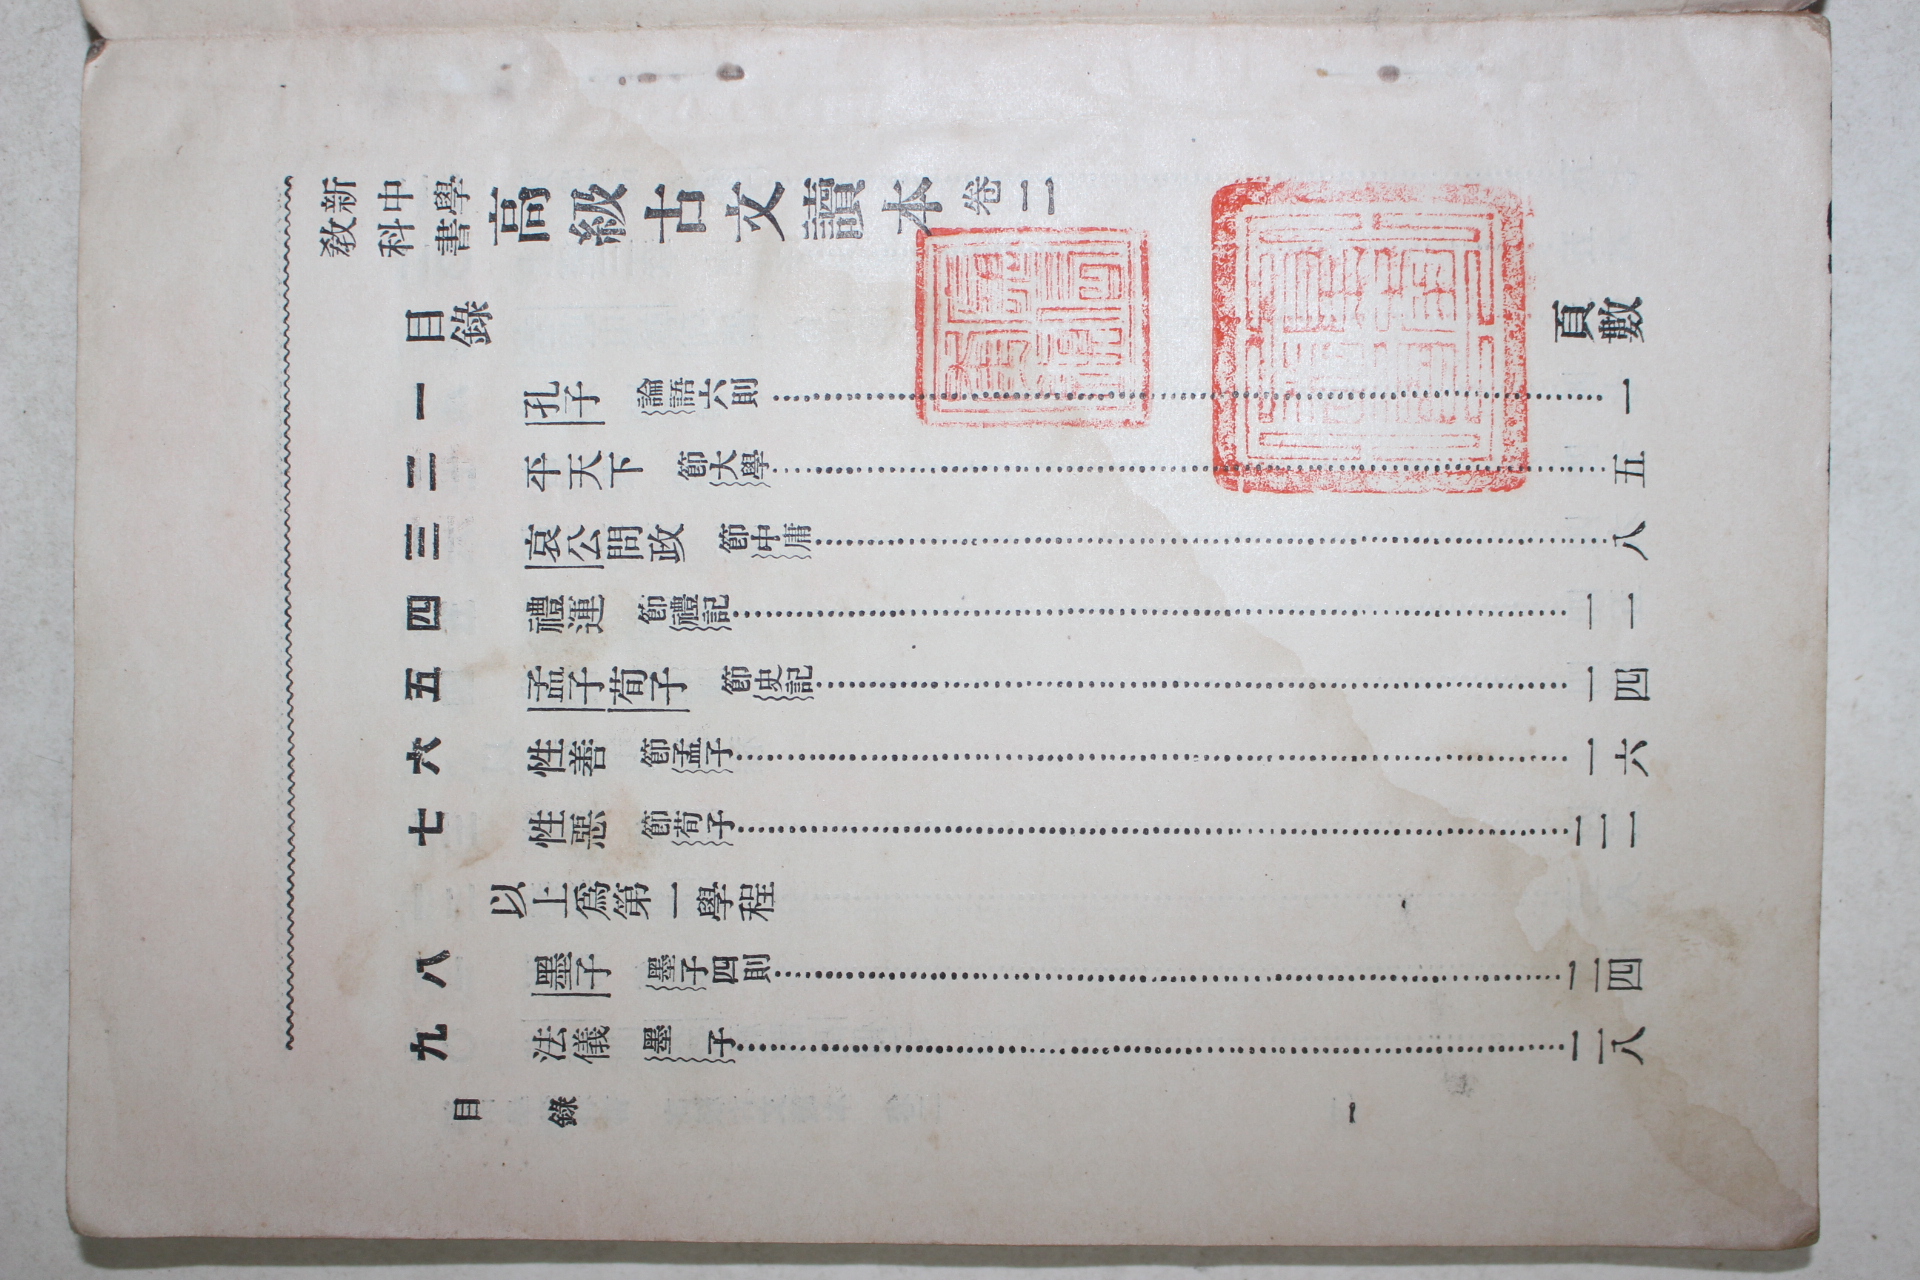 新中學
教科書
高級古文讀本 卷二
目錄 頁數
一 孔子 論語六則 一
二 平天下 節大學 五
三 哀公問政 節中庸 八
四 禮運 節禮記 一一
五 孟子荀子 節史記 一四
六 性善 節孟子 一六
七 性惡 節荀子 二一
以上爲第一學程
八 墨子 墨子四則 二四
九 法儀 墨子 二八
目錄 一